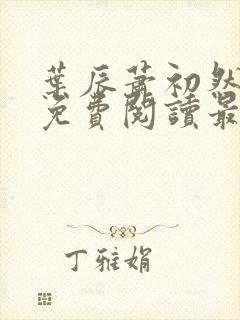 葉辰蕭初然
免費閱讀最
丁雅娟